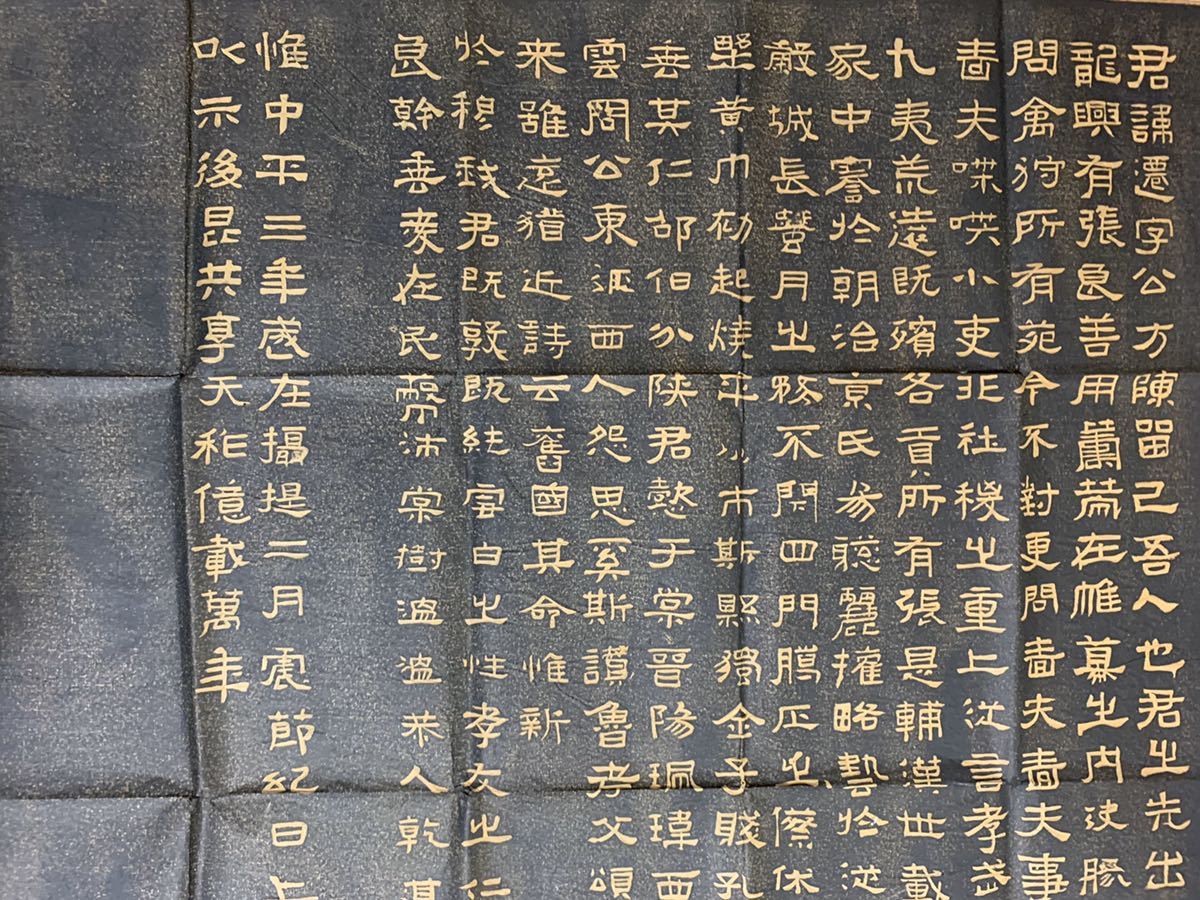 君諱遷字公方陳留己吾人也君之先出
龍興有張良善用籌策在帷幕之內決勝
問禽狩所有苑令不對更問嗇夫嗇夫事
嗇夫喋喋小吏非社稷之重上從言孝武
九夷荒遠既殯各貢所有張是輔漢世載
家中謇於朝治京氏易聰麗權略藝於從
穀城長蠶月之務不閉四門臘正之傺休
照黃巾初起燒平城市斯縣獨全子賤孔
垂其仁邵伯分陝君懿于棠晉陽珮瑋西
雲閣公東征西人怨思奚斯讚魯考父頌
来雖遠猶近詩云舊國其命惟新
於穆我君既敦既純雪白之性孝友之仁
良幹垂愛在民蔽沛棠樹溫溫恭人乾其
惟中平三年歲在攝提二月震節紀日上
以示後昆共享天祚億載萬年